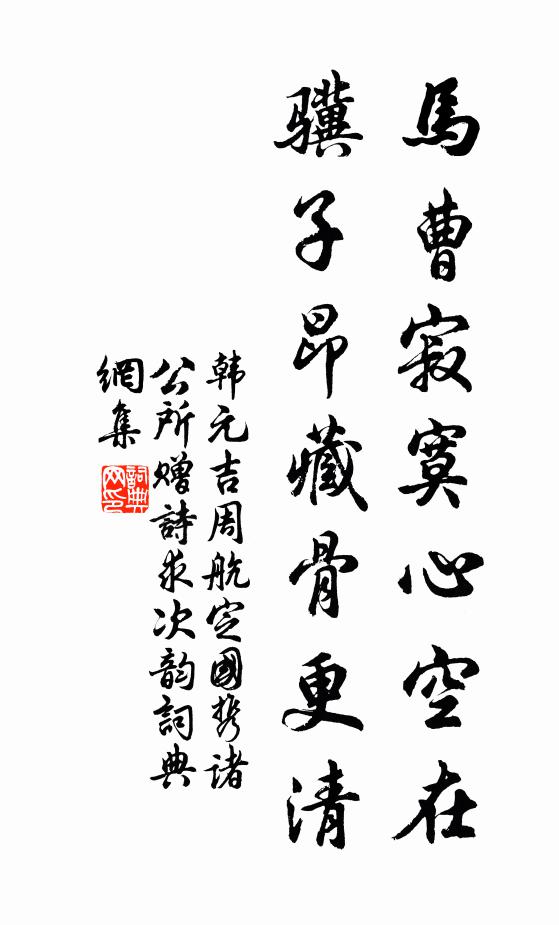 馬曹寂寞心空在
骥子昂藏骨更清
韩元吉周航定國携诸
公所赠詩求次韵詞典
網集
詞典
网印